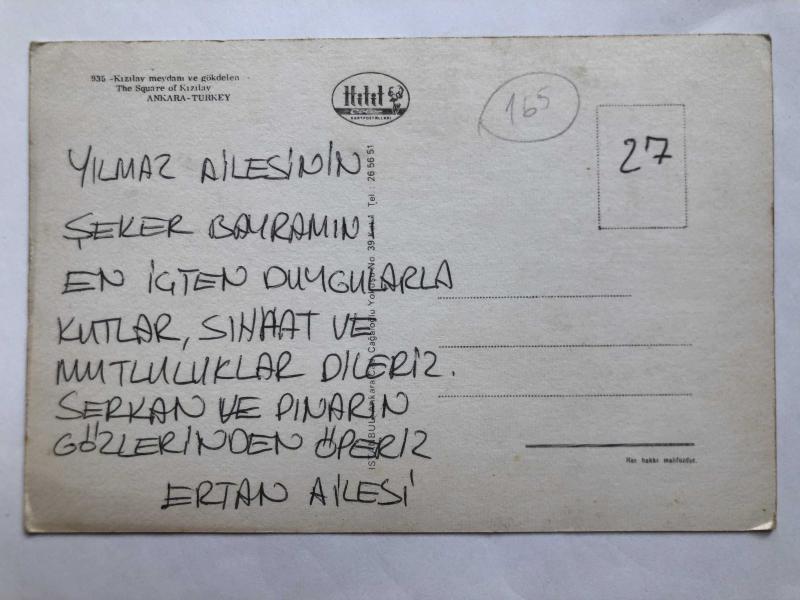 935 -Kızılay meydanı ve gökdelen
The Square of Kızılay
ANKARA-TURKEY
Hitit
KARTPOSTALLARI
165
27
YILMAZ AİLESİNİN
ŞEKER BAYRAMINI
EN İÇTEN DUYGULARLA
KUTLAR, SIHHAT VE
MUTLULUKLAR DİLERİZ.
SERKAN VE PINARIN
GÖZLERİNDEN ÖPERİZ
ERTAN AİLESİ
İSTANBUL Ankara Cad. Cağaloğlu Yokuşu No. 39 Kat 1 Tel.: 26 56 51
Her hakkı mahfuzdur.